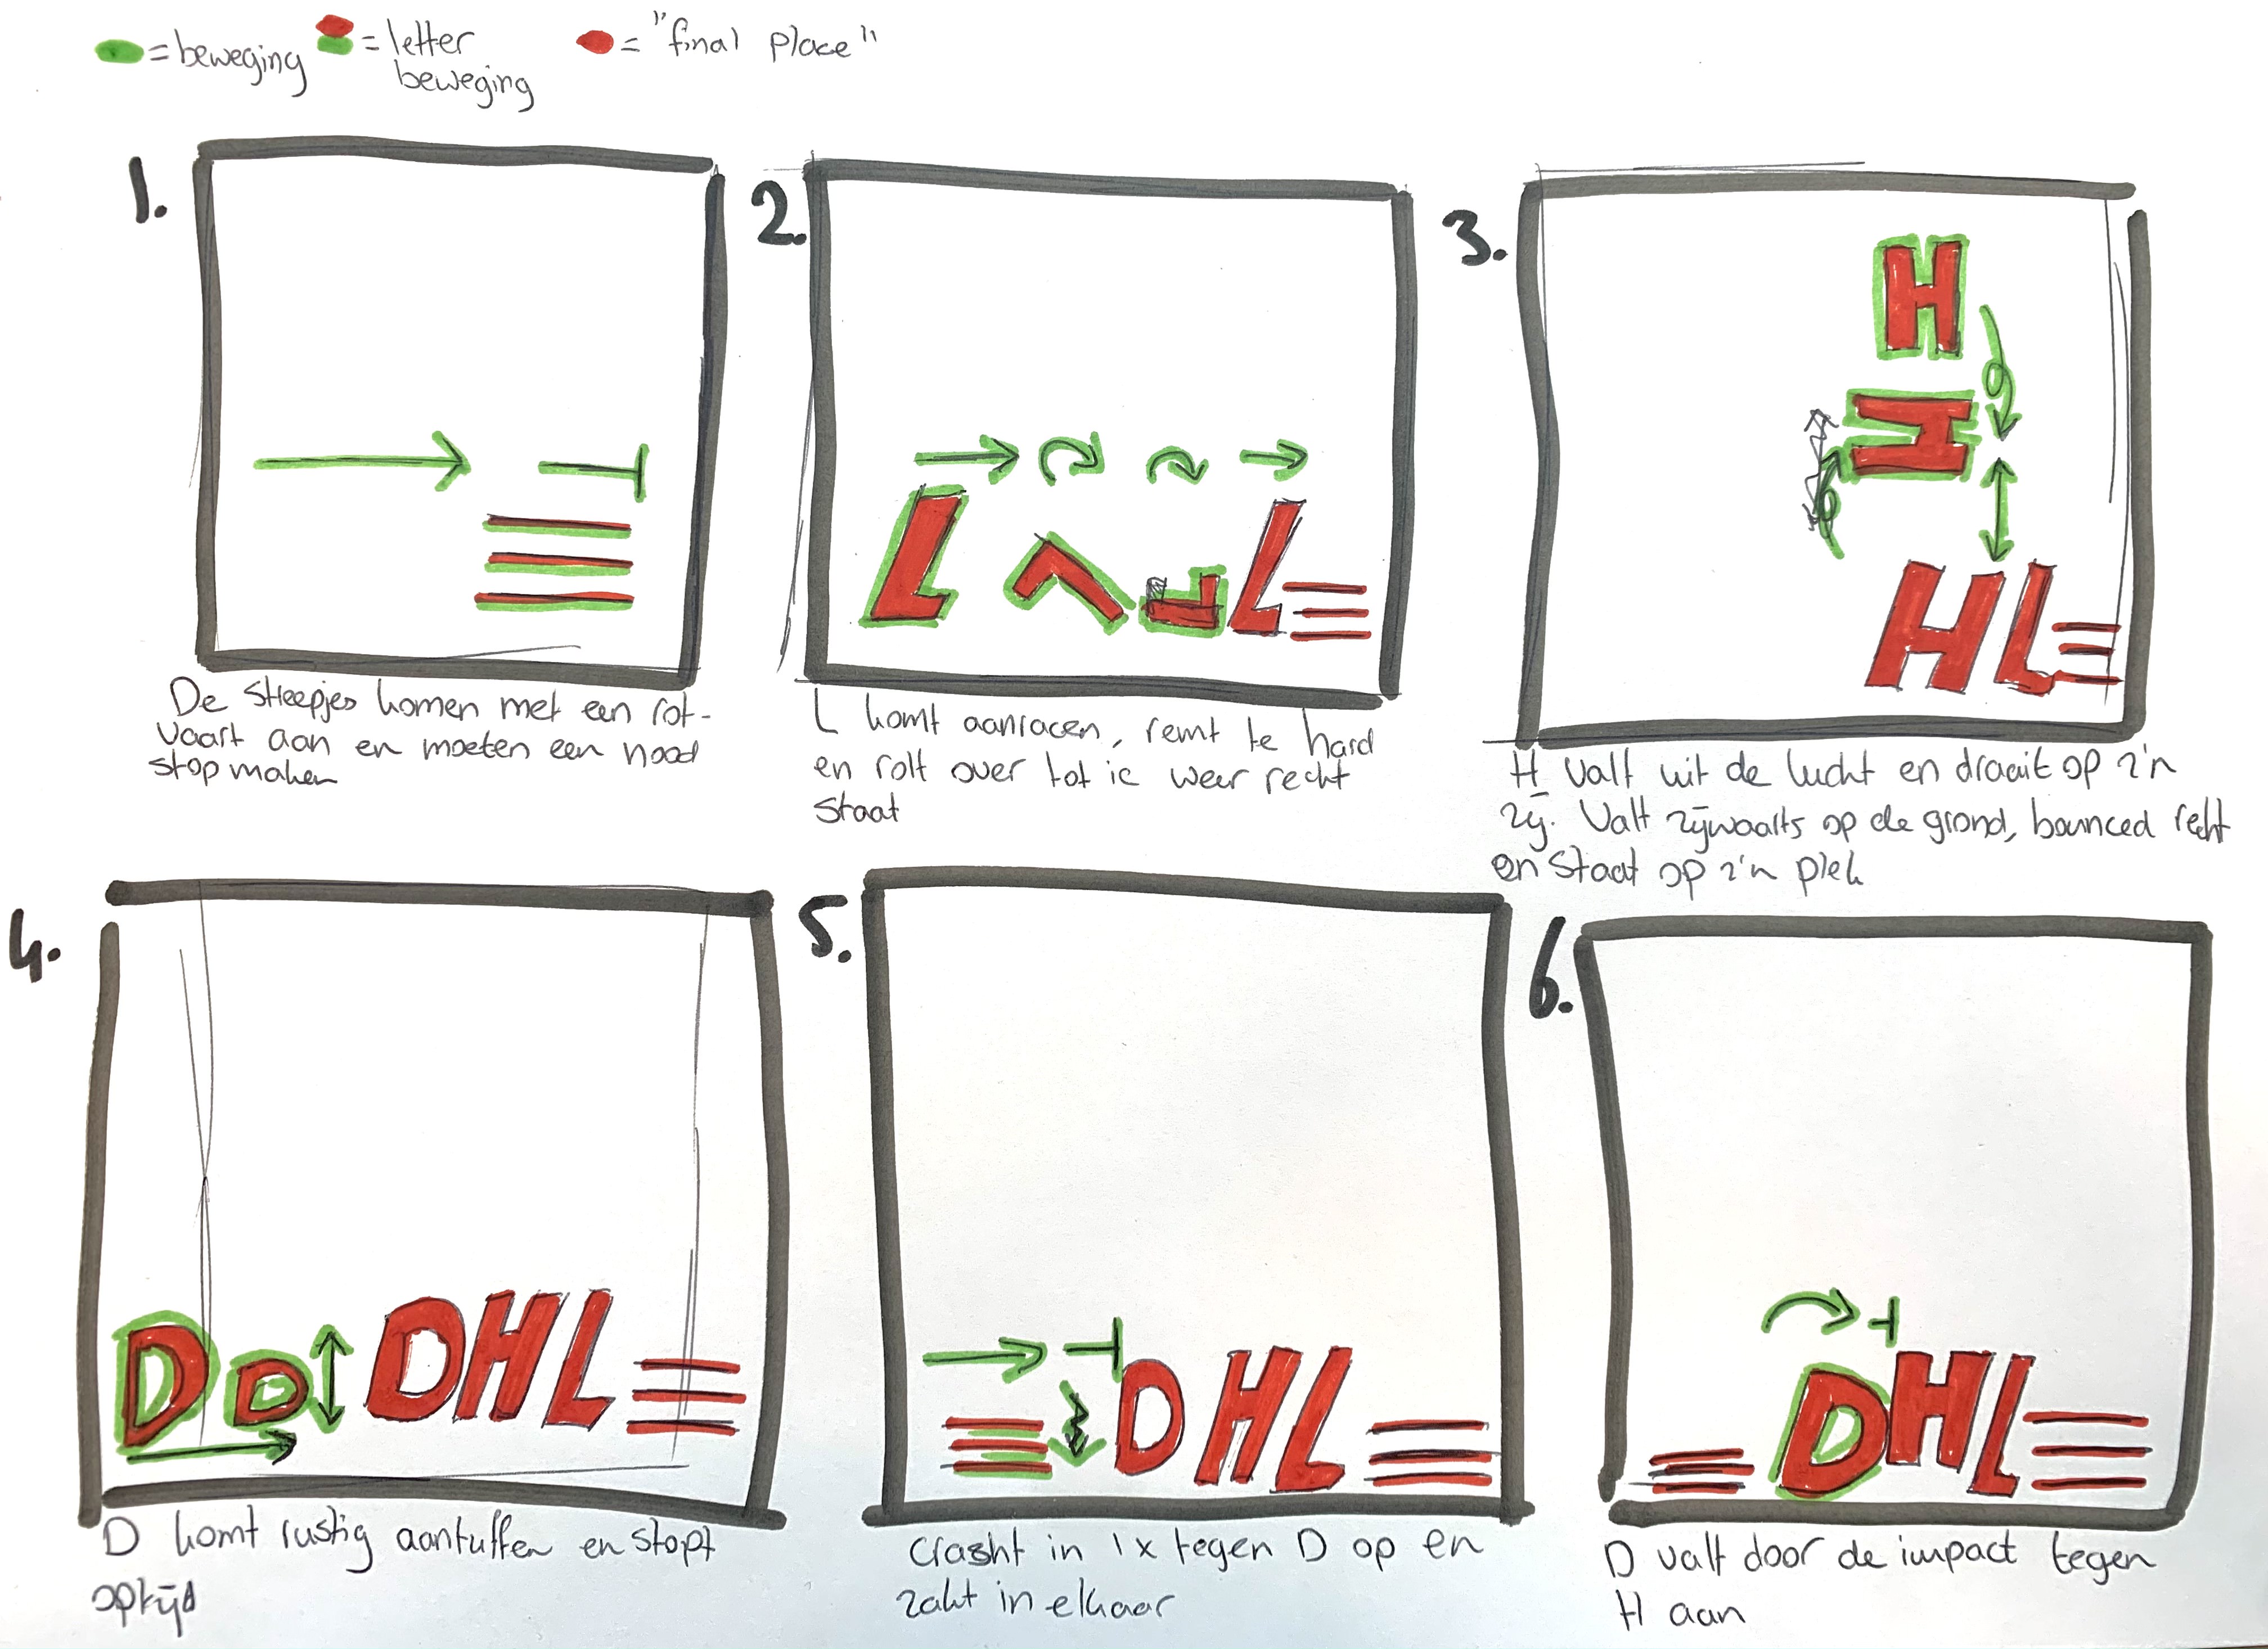 = beweging
= letter
beweging
= "final place"
1.
De streepjes komen met een rot-
vaart aan en moeten een nood
stop maken
2.
L
L
L komt aanracen, remt te hard
en rolt over tot ie weer recht
staat
3.
H
H
HL
H valt uit de lucht en draait op z'n
zij. Valt zijwaarts op de grond, bounced recht
en staat op z'n plek
4.
D D DHL
D komt rustig aantuffen en stopt
optijd
5.
DHL
Crasht in 1x tegen D op en
zakt in elkaar
6.
DHL
D valt door de impact tegen
H aan